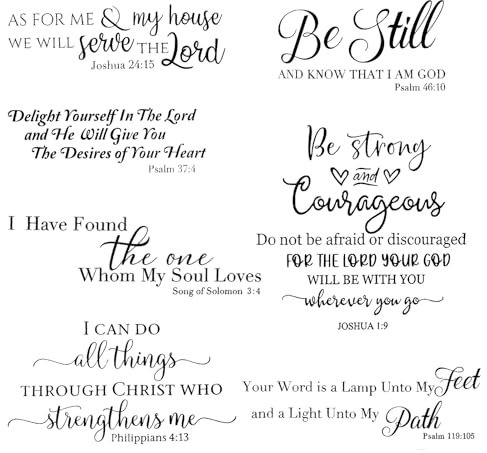 AS FOR ME & my house
WE WILL serve THE Lord
Joshua 24:15
Be Still
AND KNOW THAT I AM GOD
Psalm 46:10
Delight Yourself In The Lord
and He Will Give You
The Desires of Your Heart
Psalm 37:4
Be strong
and
Courageous
Do not be afraid or discouraged
FOR THE LORD YOUR GOD
WILL BE WITH YOU
wherever you go
JOSHUA 1:9
I Have Found
the one
Whom My Soul Loves
Song of Solomon 3:4
I CAN DO
all things
THROUGH CHRIST WHO
strengthens me
Philippians 4:13
Your Word is a Lamp Unto My Feet
and a Light Unto My Path
Psalm 119:105